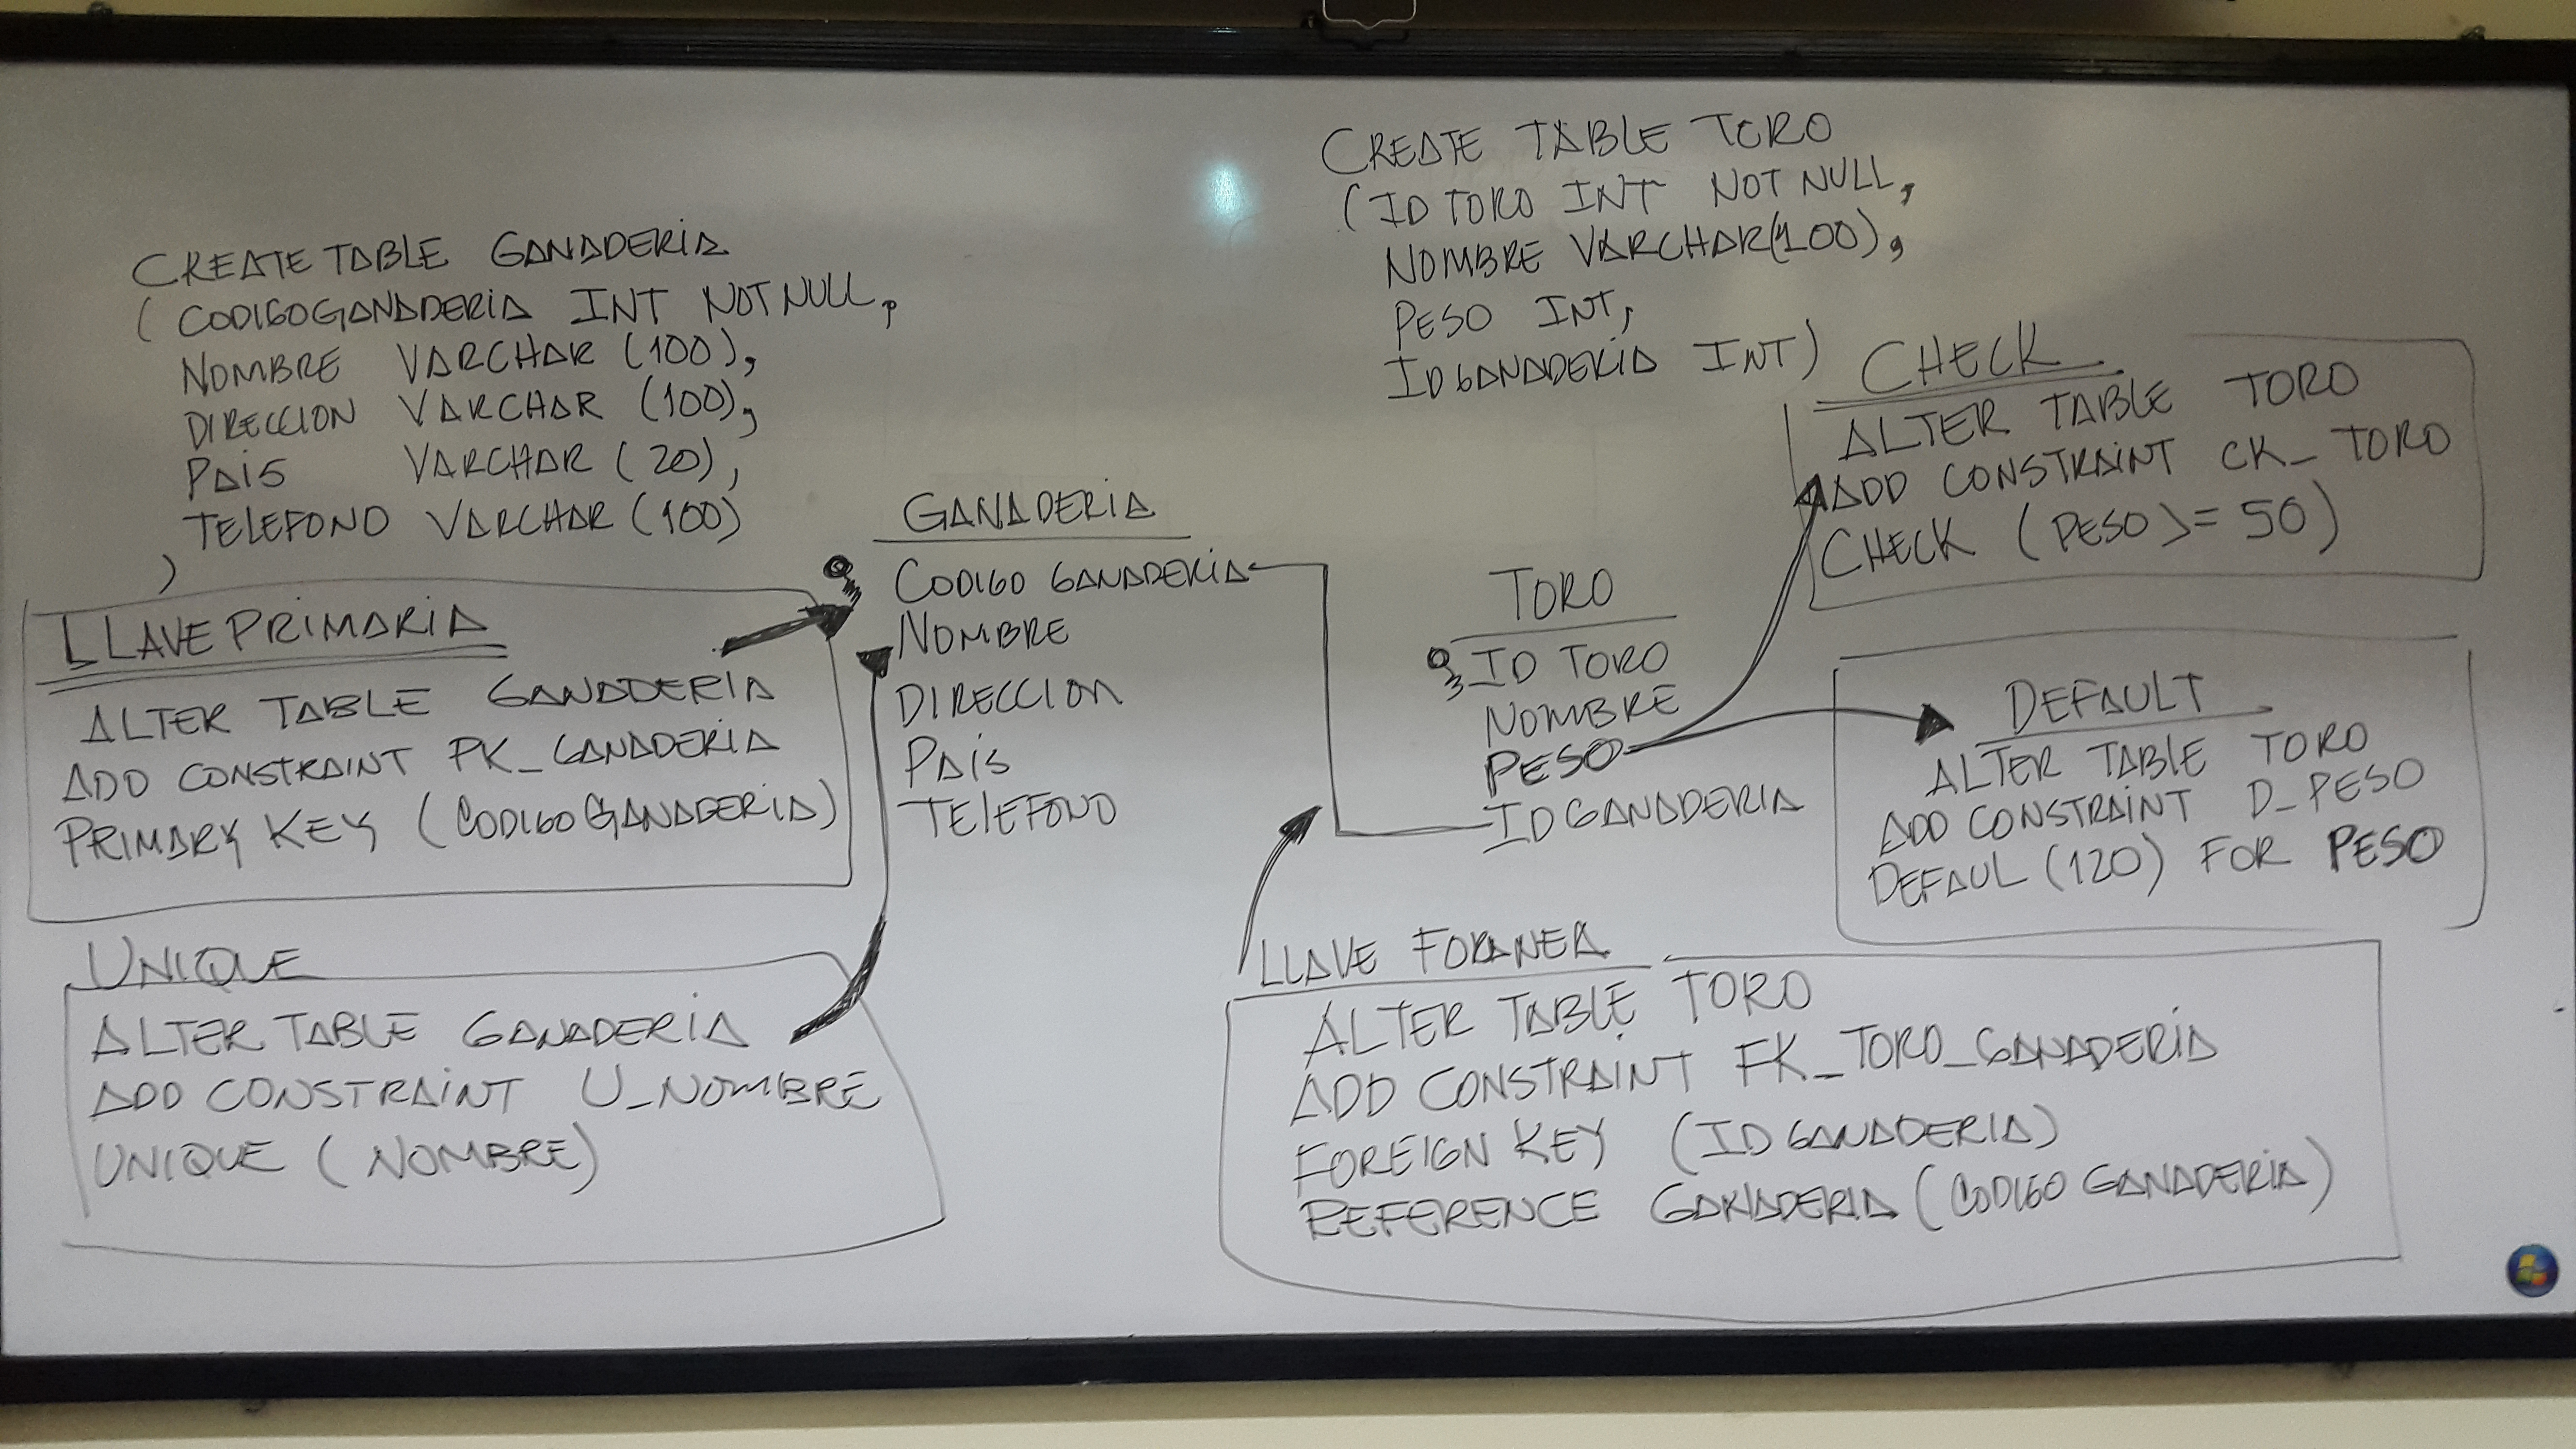 CREATE TABLE GANADERIA
( CODIGOGANADERIA INT NOT NULL,
NOMBRE VARCHAR (100),
DIRECCION VARCHAR (100),
PAIS VARCHAR (20),
TELEFONO VARCHAR (100)
)
LLAVE PRIMARIA
ALTER TABLE GANADERIA
ADD CONSTRAINT PK_GANADERIA
PRIMARY KEY (CODIGOGANADERIA)
UNIQUE
ALTER TABLE GANADERIA
ADD CONSTRAINT U_NOMBRE
UNIQUE (NOMBRE)
GANADERIA
CODIGO GANADERIA
NOMBRE
DIRECCION
PAIS
TELEFONO
CREATE TABLE TORO
(ID TORO INT NOT NULL,
NOMBRE VARCHAR(100),
PESO INT,
IDGANADERIA INT)
TORO
ID TORO
NOMBRE
PESO
IDGANADERIA
CHECK
ALTER TABLE TORO
ADD CONSTRAINT CK_TORO
CHECK (PESO >= 50)
DEFAULT
ALTER TABLE TORO
ADD CONSTRAINT D_PESO
DEFAUL (120) FOR PESO
LLAVE FORANEA
ALTER TABLE TORO
ADD CONSTRAINT FK_TORO_GANADERIA
FOREIGN KEY (IDGANADERIA)
REFERENCE GANADERIA (CODIGO GANADERIA)